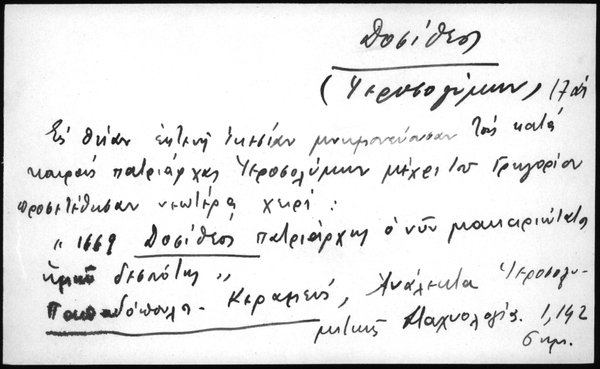 Δοσίθεος
(Ἱεροσολύμων) 17 αἰ
Εἰς θείαν ἐκτενῆ ἱκεσίαν μνημονεύουσαν τοὺς κατὰ
καιροὺς πατριάρχας Ἱεροσολύμων μέχρι τοῦ Γρηγορίου
προσετέθησαν νεωτέρᾳ χειρί:
"1669 Δοσίθεος πατριάρχης ὁ νῦν μακαριώτατος
ἡμῶν δεσπότης"
Παπαδόπουλος-Κεραμεύς, Ἀνάλεκτα Ἱεροσολυ-
μιτικῆς Σταχυολογίας. 1,142
σημ.